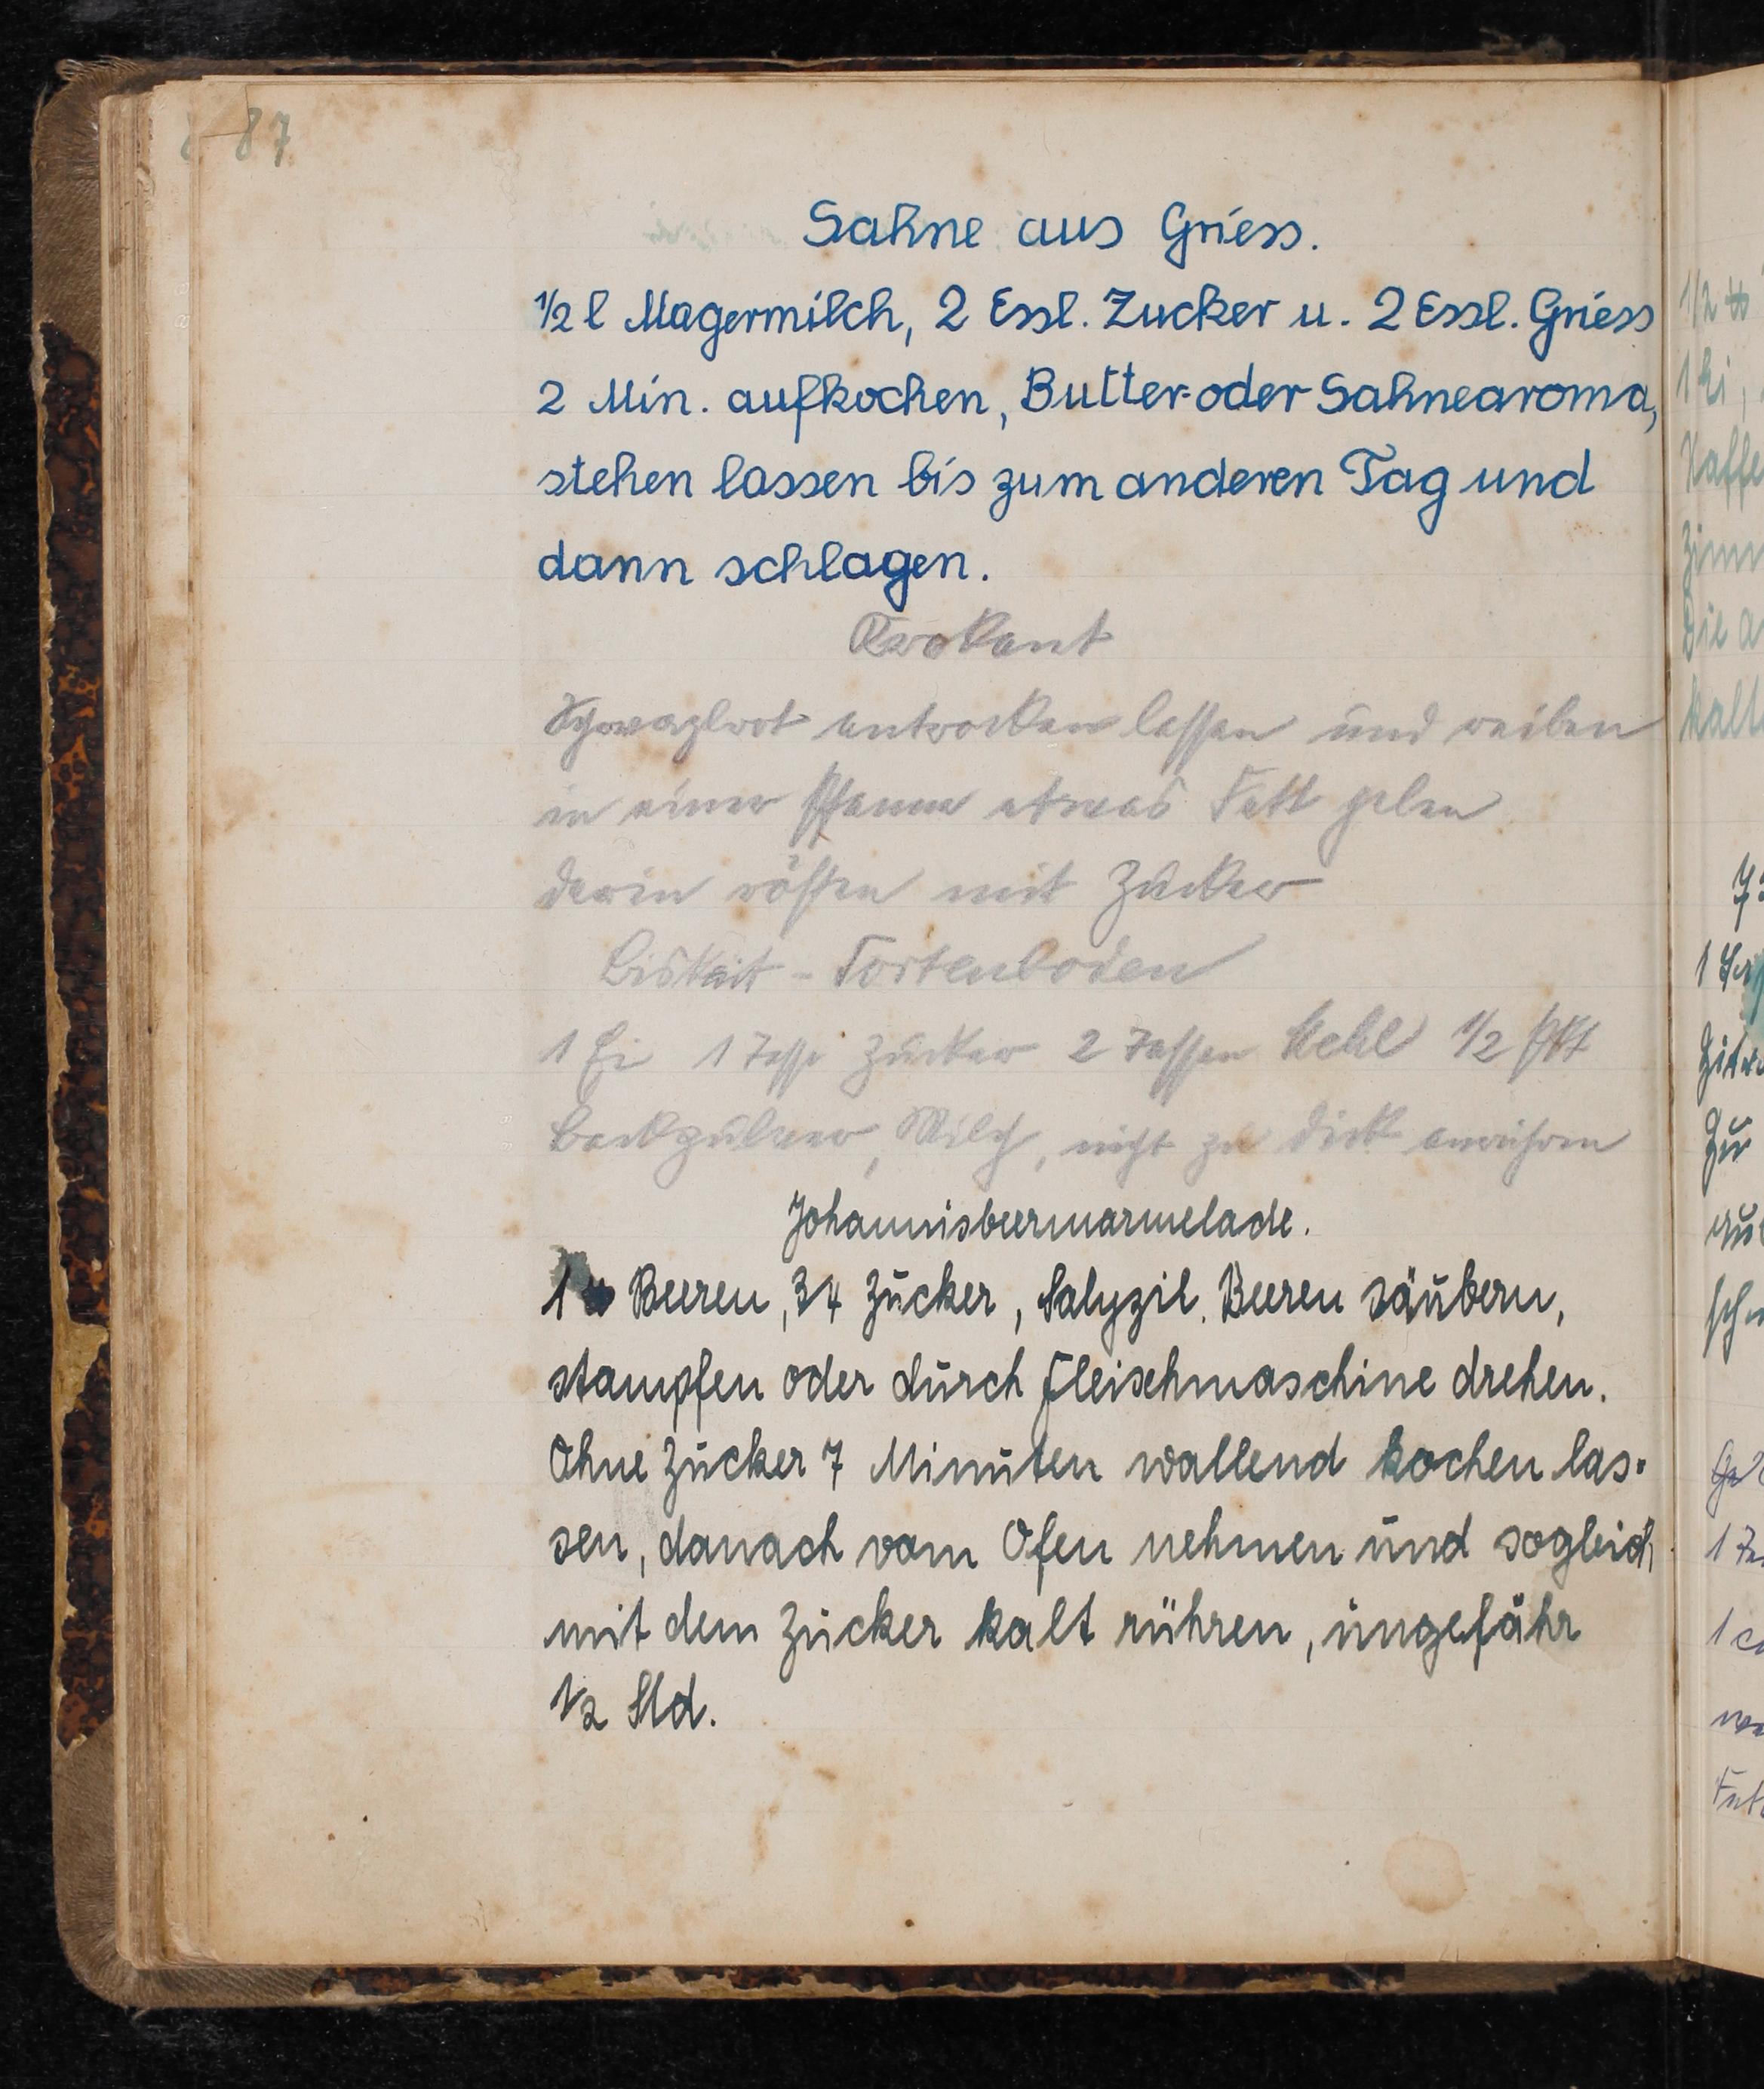 87
Sahne aus Griess.
½ l Magermilch, 2 Essl. Zucker u. 2 Essl. Griess
2 Min. aufkochen, Butter- oder Sahnearoma,
stehen lassen bis zum anderen Tag und
dann schlagen.
Krokant
Schwarzbrot antrocken lassen und reiben
in einer Pfanne etwas Fett geben
darin rösten mit Zucker
Biskuit - Tortenboden
1 Ei 1 Tasse Zucker 2 Tassen Mehl ½ Pkt
Backpulver, Milch, nicht zu dick anrühren
Johannisbeermarmelade.
1 ℔ Beeren, 3/4 Zucker, Salyzil. Beeren säubern,
stampfen oder durch Fleischmaschine drehen.
Ohne Zucker 7 Minuten wallend kochen las-
sen, danach vom Ofen nehmen und sogleich
mit dem Zucker kalt rühren, ungefähr
½ Std.
1/2 ℔
1 Ei,
Die
kalt